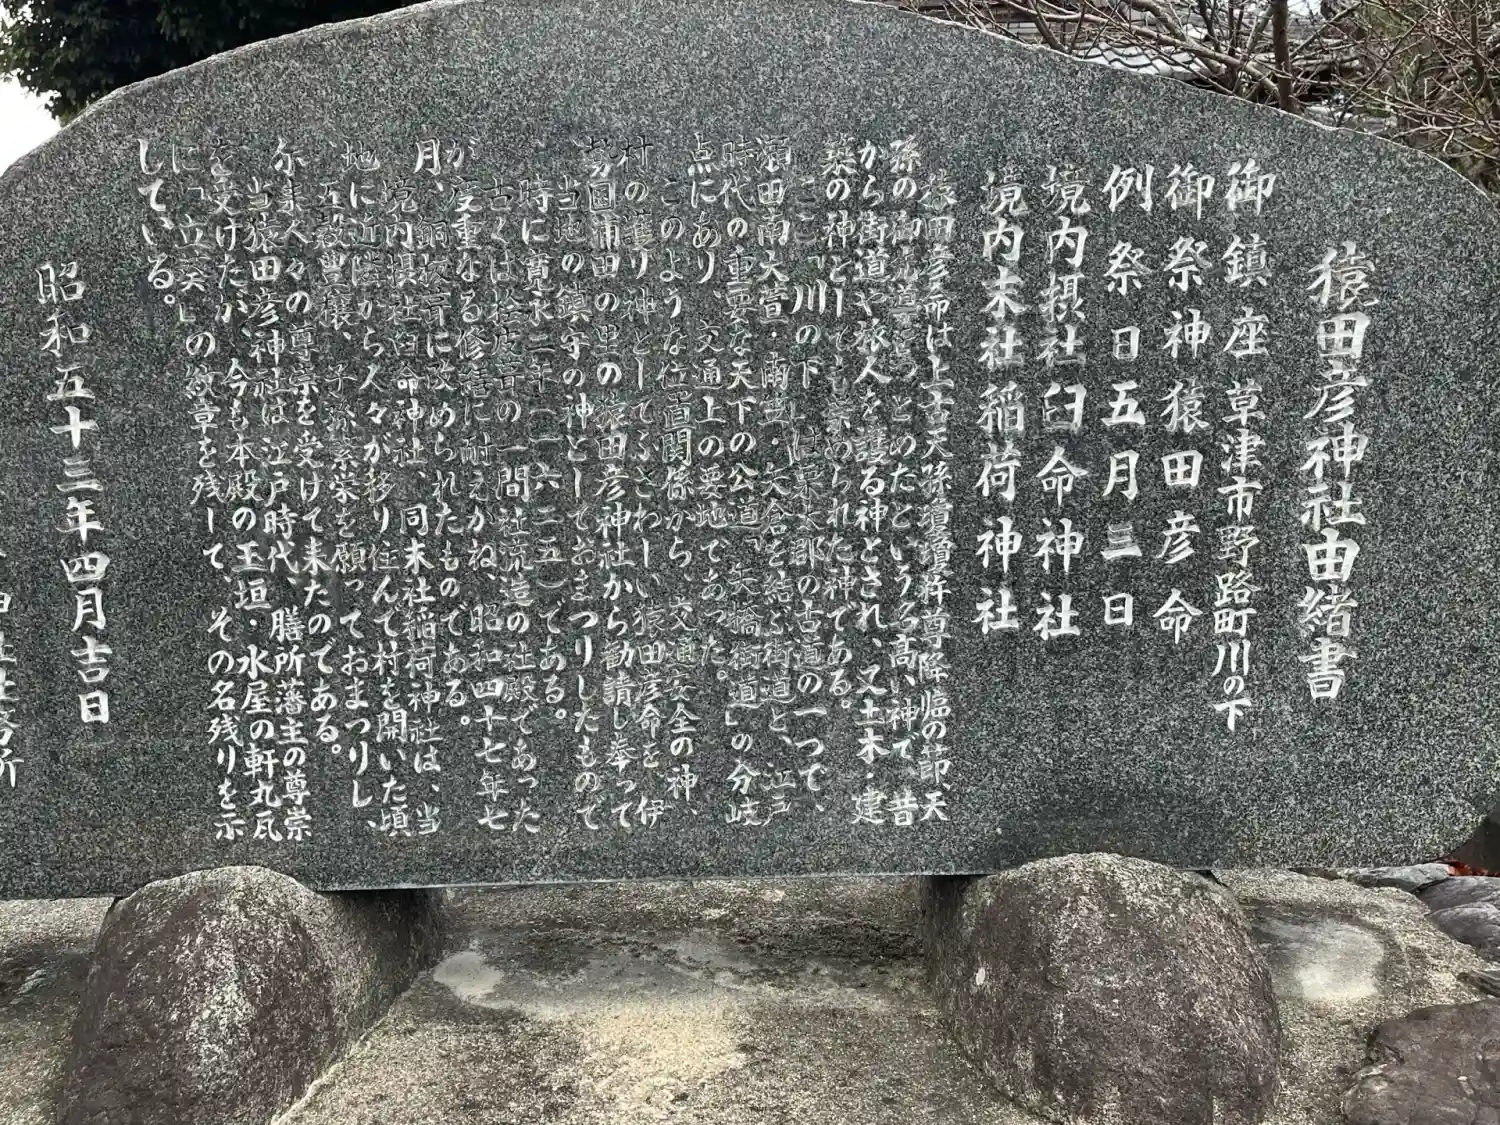 猿田彦神社由緒書
御鎮座 草津市野路町川の下
御祭神 猿田彦命
例祭日 五月三日
境内摂社 臼命神社
境内末社 稲荷神社
猿田彦命は上古天孫瓊瓊杵尊降臨の節、天
孫の御先道をつとめたという名高い神で、昔
から街道や旅人を護る神とされ、又土木・建
築の神としても崇められた神である。
ここ「川の下」は栗太郡の古道の一つで、
瀬田南大萱・南笠・矢倉を結ぶ街道と、江戸
時代の重要な天下の公道「矢橋街道」の分岐
点にあり 交通上の要地であった。
このような位置関係から、交通安全の神、
村の護り神としてふさわしい猿田彦命を 伊
勢国浦田の里の猿田彦神社から勧請し奉って
当地の鎮守の神としておまつりしたもので
時に寛永二年(一六二五)である。
古くは桧皮葺の一間社流造の社殿であった
が 度重なる修善に耐えかね、昭和四十七年七
月、銅板葺に改められたものである。
境内摂社臼命神社 同末社稲荷神社は、当
地に近隣から人々が移り住んで村を開いた頃
、五穀豊穣、子孫繁栄を願っておまつりし、
尓来人々の尊崇を受けて来たのである。
当猿田彦神社は江戸時代、膳所藩主の尊崇
を受けたが、今も本殿の玉垣・水屋の軒丸瓦
に「立葵」の紋章を残して、その名残りを示
している。
昭和五十三年四月吉日